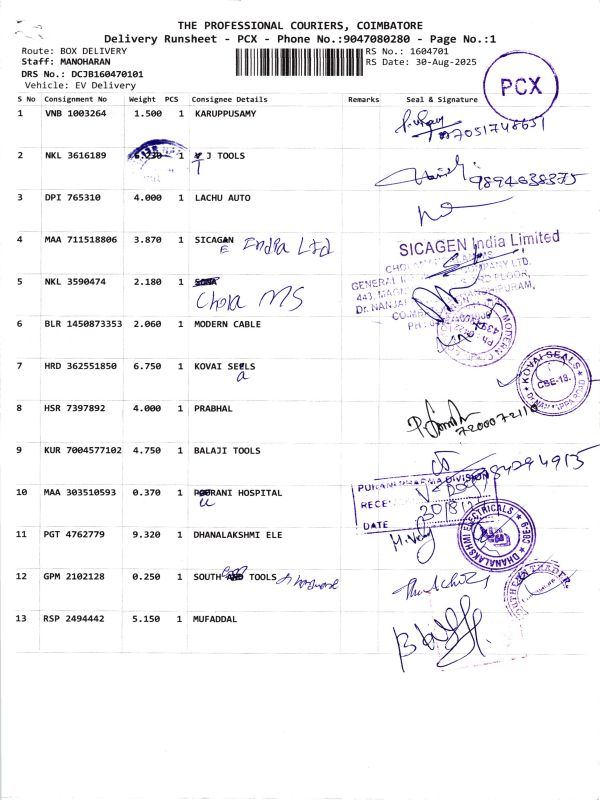 THE PROFESSIONAL COURIERS, COIMBATORE
Delivery Runsheet - PCX - Phone No.:9047080280 - Page No.:1
Route: BOX DELIVERY
RS No.: 1604701
Staff: MANOHARAN
RS Date: 30-Aug-2025
DRS No.: DCJB160470101
Vehicle: EV Delivery
PCX
S No Consignment No Weight PCS Consignee Details Remarks Seal & Signature
1 VNB 1003264 1.500 1 KARUPPUSAMY
2 NKL 3616189 6.230 1 J TOOLS
T
9894638375
3 DPI 765310 4.000 1 LACHU AUTO
4 MAA 711518806 3.870 1 SICAGAN India Ltd
E
SICAGEN India Limited
5 NKL 3590474 2.180 1
Chola MS
6 BLR 1450873353 2.060 1 MODERN CABLE
7 HRD 362551850 6.750 1 KOVAI SEELS
a
KOVAI SEALS
CBE-18.
8 HSR 7397892 4.000 1 PRABHAL
9 KUR 7004577102 4.750 1 BALAJI TOOLS
10 MAA 303510593 0.370 1 POORANI HOSPITAL
u
DIVISION
DATE
11 PGT 4762779 9.320 1 DHANALAKSHMI ELE
DHANALAKSHMI ELECTRICALS
12 GPM 2102128 0.250 1 SOUTH TOOLS
13 RSP 2494442 5.150 1 MUFADDAL